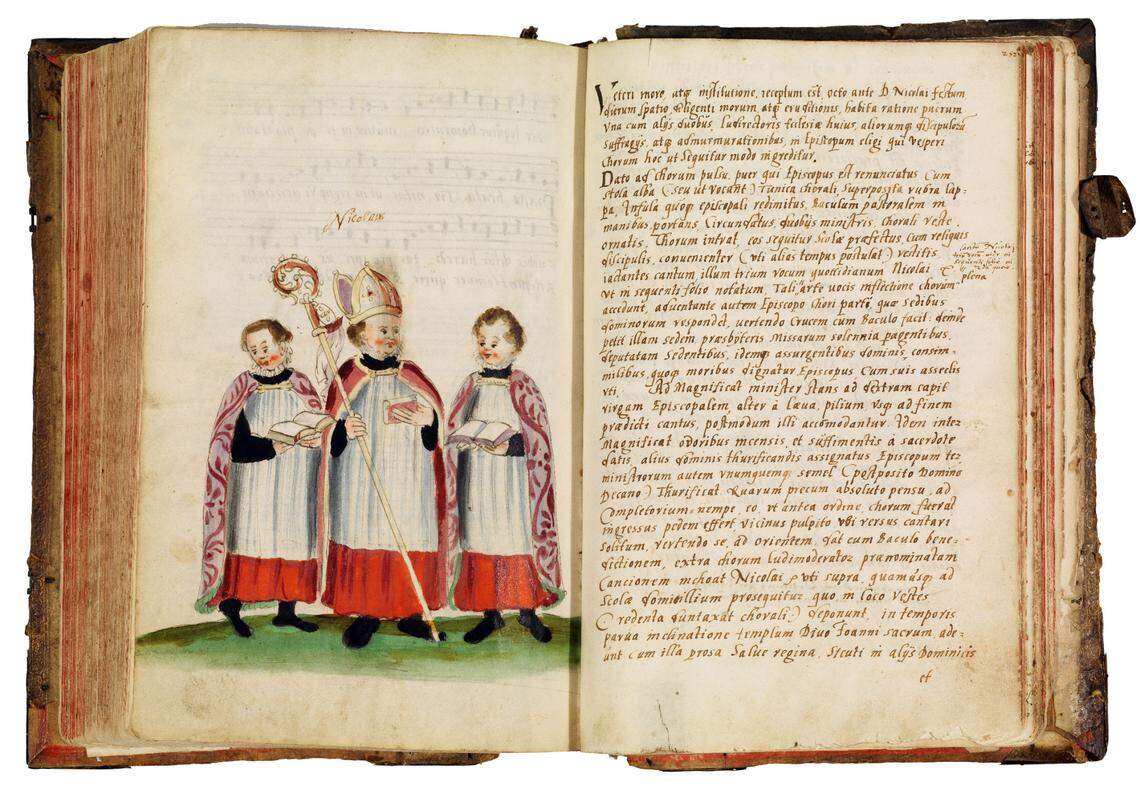 Nicolaus
Veteri more, atq̃ institutione, receptum est, octo ante D Nicolai festum
dierum spatio, diligenti morum, atq̃ eruditionis, habita ratione puerum
vna cum alijs duobus, ludirectoris Ecclesiæ huius, aliorumq̃ discipulorũ
suffragijs, atq̃ admurmurationibus, in Episcopum eligi qui vesperi
chorum hoc ut sequitur modo ingreditur.
Dato ad chorum pulsu, puer qui Episcopus est renunciatus Cum
stola alba (seu ut vocant) tunica chorali, superposita rubra cap-
pa, Infula quoq̃ episcopali redimitus, Baculum pastoralem in
manibus portans, Circundatus, duobus ministris, chorali veste
ornatis, Chorum intrat, eos sequitur Scolæ præfectus, cum reliquis
discipulis, convenienter (vti alias tempus postulat) vestitis
iactantes cantum, illum trium vocum quottidianum Nicolai
vt in sequenti folio notatum, Tali arte vocis inflectione chorum
plena
accedunt, adventante autem Episcopo Chori parti, quæ sedibus
dominorum respondet, vertendo Crucem cum Baculo facit: deinde
petit illam sedem, præsbyteris Missarum solennia pagentibus,
deputatam sedentibus, idemq̃ assurgentibus dominis, consim-
milibus quoq̃ moribus dignatur Episcopus Cum suis assectis
vti. Ad Magnificat minister stans ad dextram capit
virgam Episcopalem, alter à læva, pilium vsq̃ ad finem
prædicti cantus, postmodum illi accomodantur. Idem inter
Magnificat odoribus incensis, et suffimentis à sacerdote
datis, alius dominis thurificandis assignatus Episcopum ter
ministrorum autem vnumquemq̃ semel (postposito Domino
Decano) Thurificat. Quarum precum absoluto pensu, ad
Completorium nempe, eo, vt antea ordine, chorum fuerat
ingressus pedem effert vicinus pulpito vbi versus cantari
solitum, vertendo se, ad orientem, dat cum Baculo bene-
dictionem, extra chorum Ludimoderator prænominatam
Cancionem inchoat Nicolai, vti supra, quamusq̃ ad
Scolæ domicillium prosequitur, quo in loco vestes
(Credenta duntaxat chorali) deponunt, in temporis
parua inclinatione templum Diuo Joanni sacrum, ade-
unt cum illa prosa Salue regina, Sicuti in alijs Dominicis
et